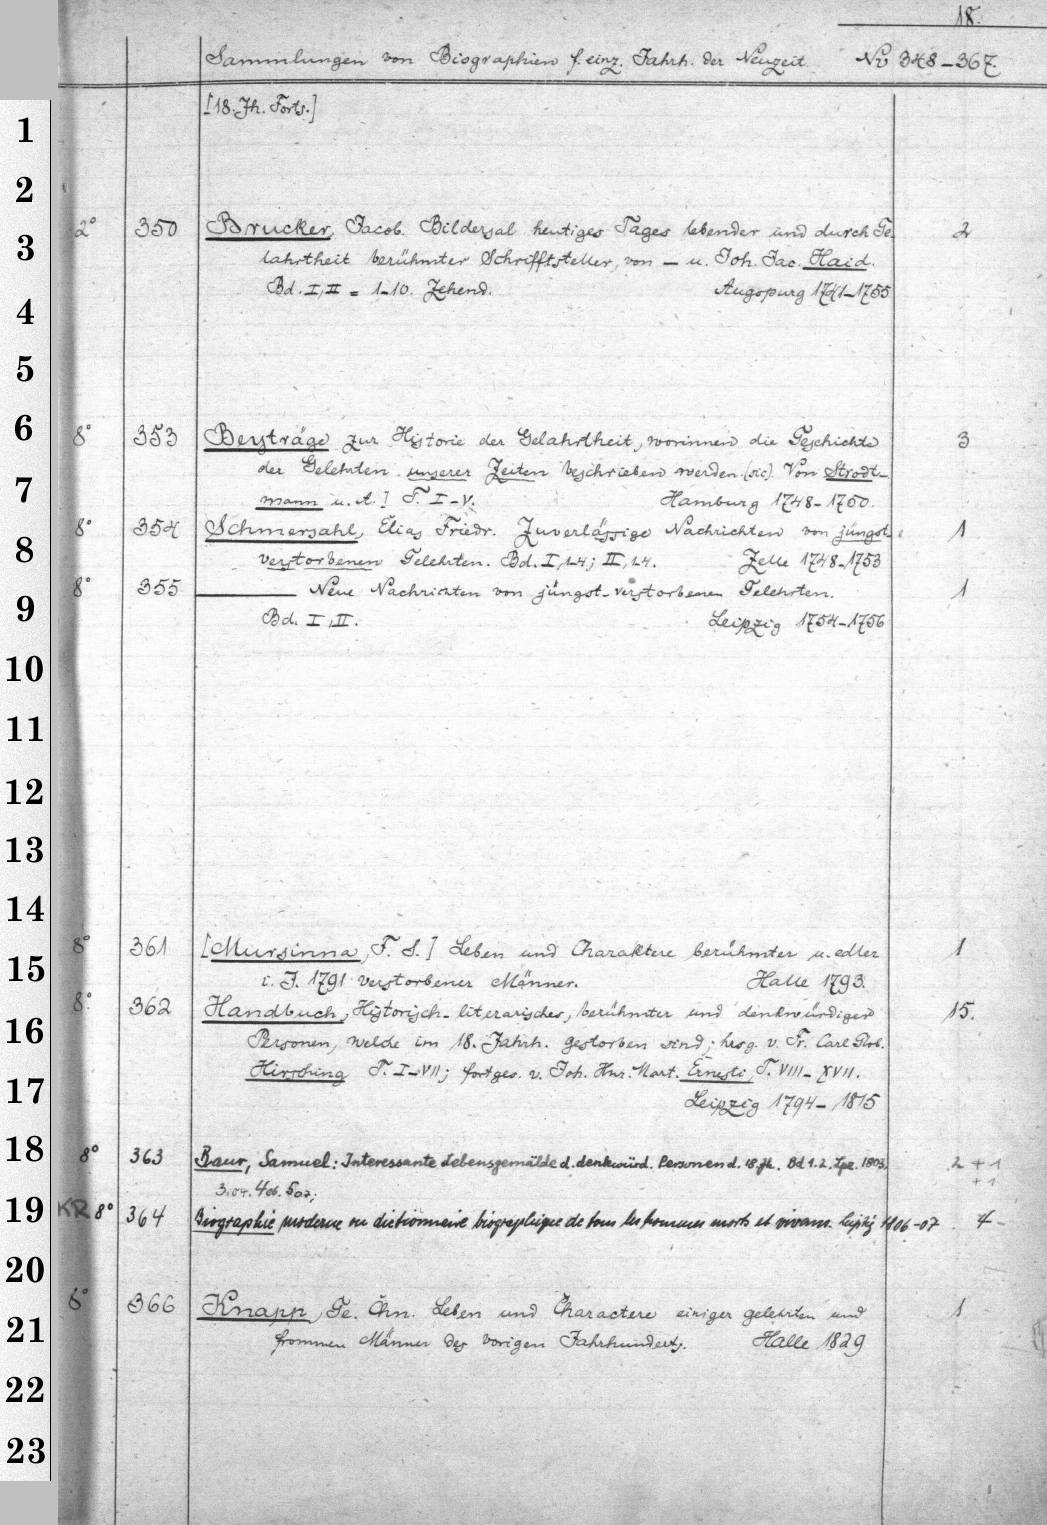 18.
Sammlungen von Biographien f. einz. Jahrh. der Neuzeit. No 348-367
[18. Jh. Forts.]
1
2
2° 350 Brucker, Jacob. Bildersal heutiges Tages lebender und durch Ge-
3
lahrtheit berühmter Schrifftsteller, von — u. Joh. Jac. Haid. 2
Bd. I, II = 1-10. Zehend. Augspurg 1741-1755
4
5
6
8° 353 Beyträge zur Historie der Gelahrtheit, worinnen die Geschichte 3
der Gelehrten unserer Zeiten beschrieben werden. (sic). Von Strodt-
7
mann u. A.] T. I-V. Hamburg 1748-1750.
8° 354 Schmersahl, Elias Friedr. Zuverlässige Nachrichten von jüngst- 1
8
verstorbenen Gelehrten. Bd. I, 1-4; II, 1.4. Zelle 1748-1753
8° 355 ——— Neue Nachrichten von jüngst-verstorbenen Gelehrten. 1
9
Bd. I, II. Leipzig 1754-1756
10
11
12
13
14
8° 361 [Mursinna, F. S.] Leben und Charaktere berühmter u. edler 1
15
i. J. 1791 verstorbener Männer. Halle 1793.
8° 362 Handbuch, Historisch-literarisches, berühmter und denkwürdiger 15.
16
Personen, welche im 18. Jahrh. gestorben sind; hrsg. v. Fr. Carl Glob.
Hirsching T. I-VII; fortges. v. Joh. Hnr. Mart. Ernesti, T. VIII-XVII.
17
Leipzig 1794-1815
18
8° 363 Baur, Samuel: Interessante Lebensgemälde d. denkwürd. Personen d. 18. Jh. Bd 1.2. Lpz. 1803. 2 + 1
3.04. 4.06. 5.07; + 1
19
KR 8° 364 Biographie moderne ou dictionnaire biographique de tous les hommes morts et vivans. Leipzig 1806-07. 4-
20
8° 366 Knapp, Ge. Chn. Leben und Charactere einiger gelehrten und 1
21
frommen Männer des vorigen Jahrhunderts. Halle 1829
22
23